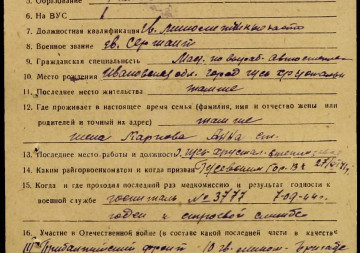 5. Образование
6. На ВУС 1
7. Должностная квалификация
8. Военное звание гв. Сержант
9. Гражданская специальность
10. Место рождения Ивановская обл. город Гусь Хрустальн
11. Последнее место жительства там же
12. Где проживает в настоящее время семья (фамилия, имя и отчество жены или
родителей и точный их адрес) там же
жена Карпова Анна
13. Последнее место работы и должность Гусь
14. Каким райгорвоенкоматом и когда призван Гусевским Гор. В.К.
15. Когда и где проходил последний раз медкомиссию и результат годности к
военной службе госпиталь № 3777 7-09-44 г.
годен к строевой службе
16. Участие в Отечественной войне (в составе какой последней части и в качестве
III Прибалтийский фронт 10 гв. мином. бригада